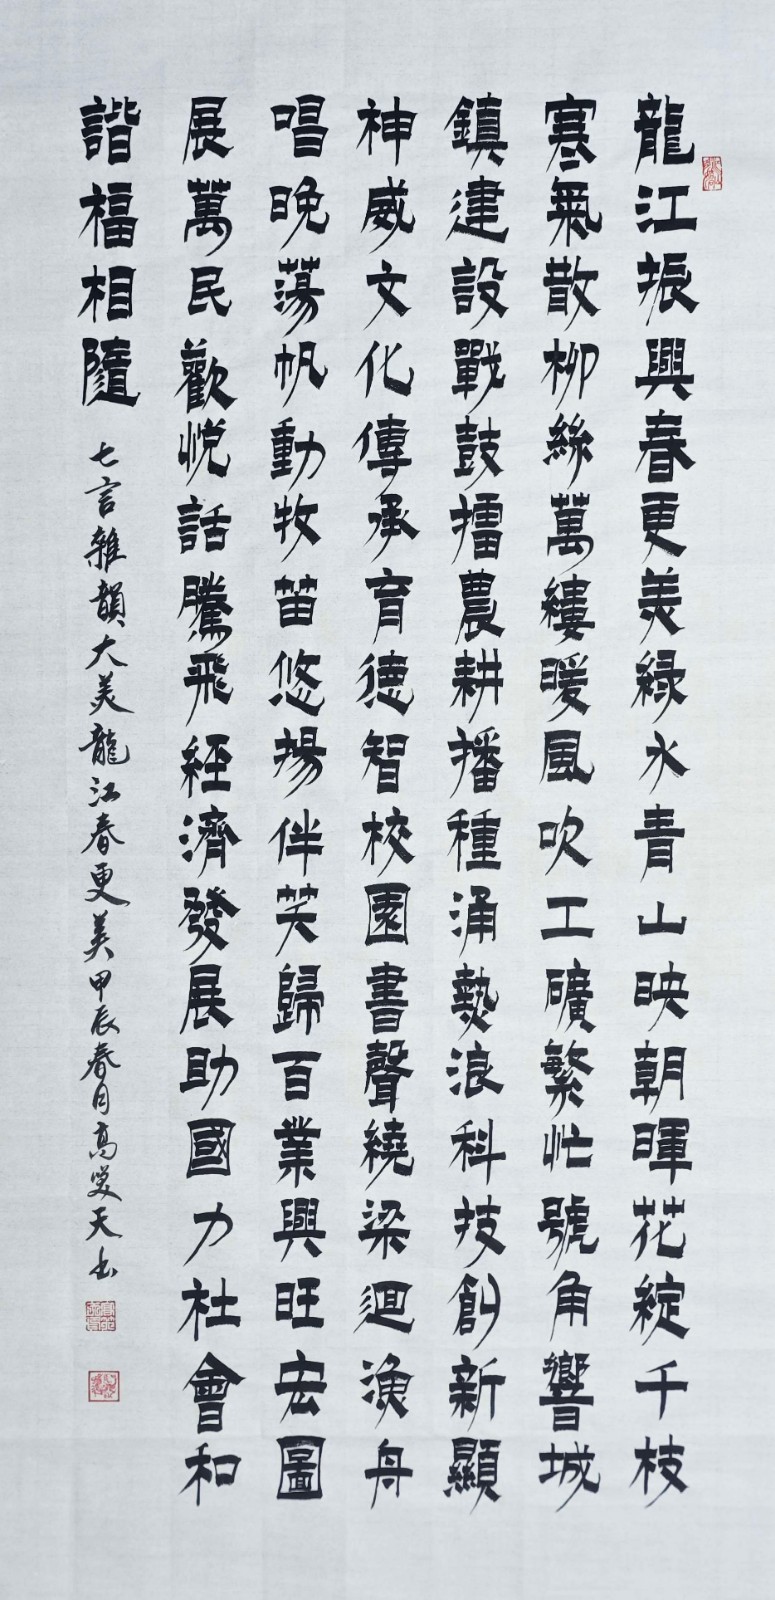 龍江振興春更美綠水青山映朝暉花綻千枝
寒氣散柳絲萬縷暖風吹工礦繁忙號角響城
鎮建設戰鼓擂農耕播種涌熱浪科技創新顯
神威文化傳承育德智校園書聲繞梁迴漁舟
唱晚蕩帆動牧笛悠揚伴笑歸百業興旺宏圖
展萬民歡悅話騰飛經濟發展助國力社會和
諧福相隨
七言雜韻大美龍江春更美甲辰春月高笑天書